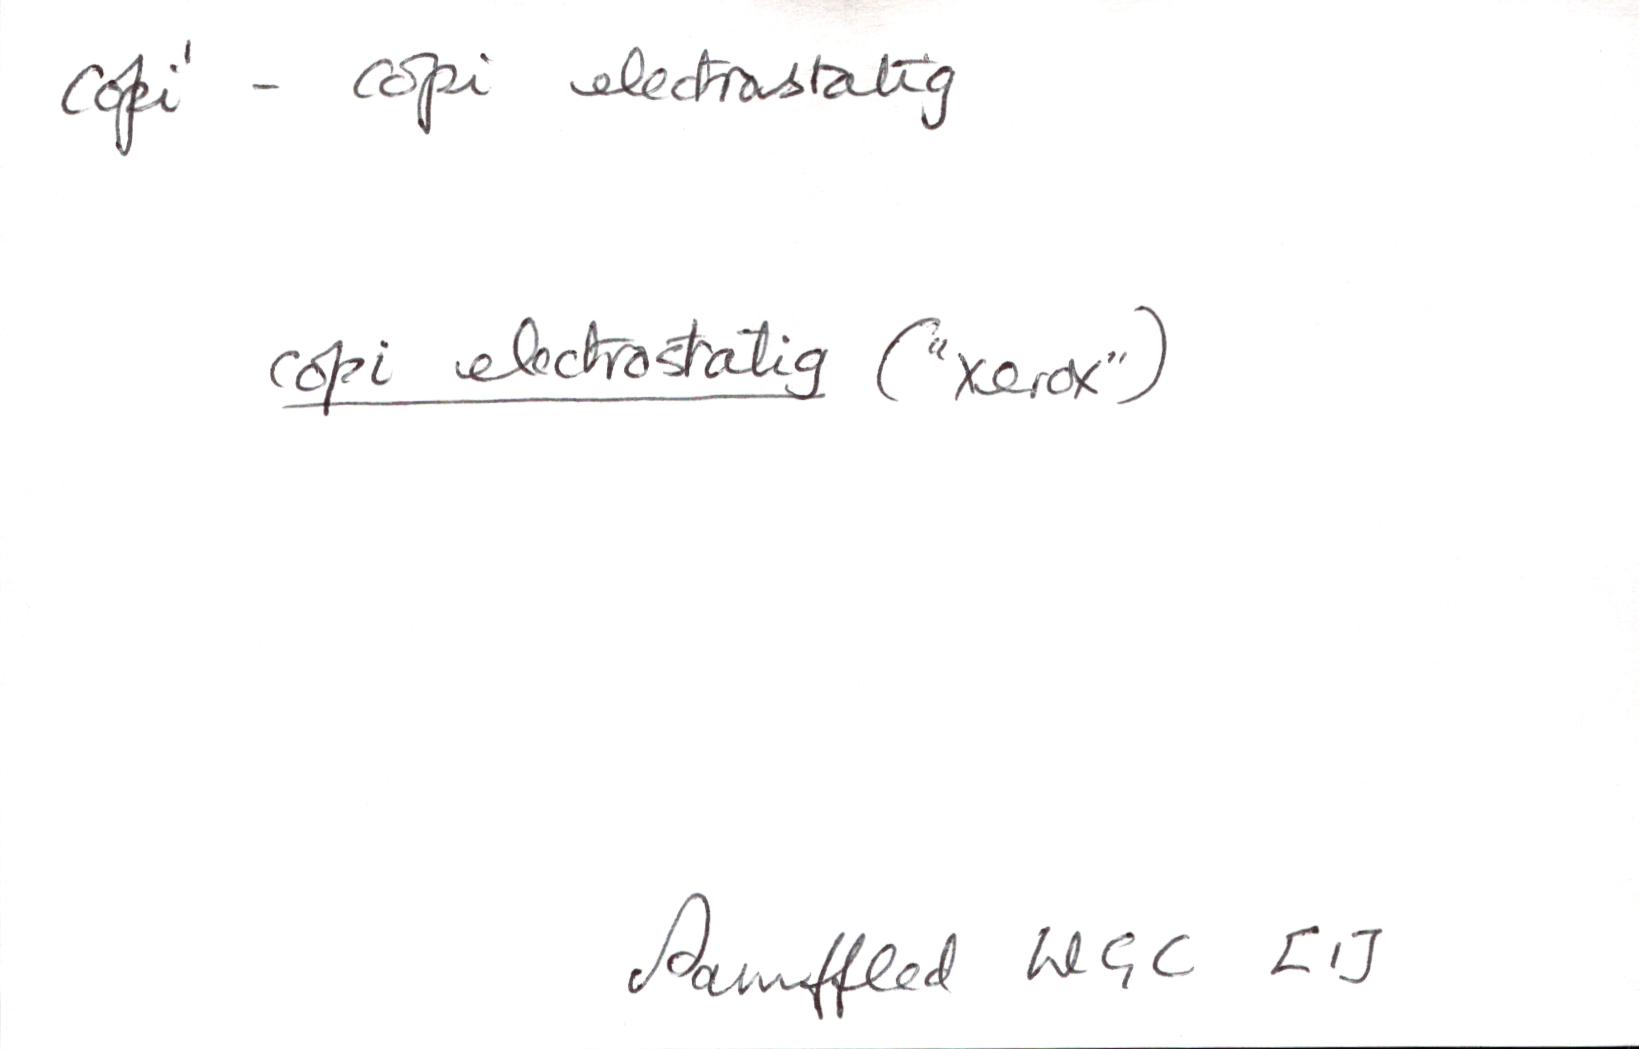 copi' - copi electrastatig
copi electrostatig ("xerox")
Pamffled WGC [1]